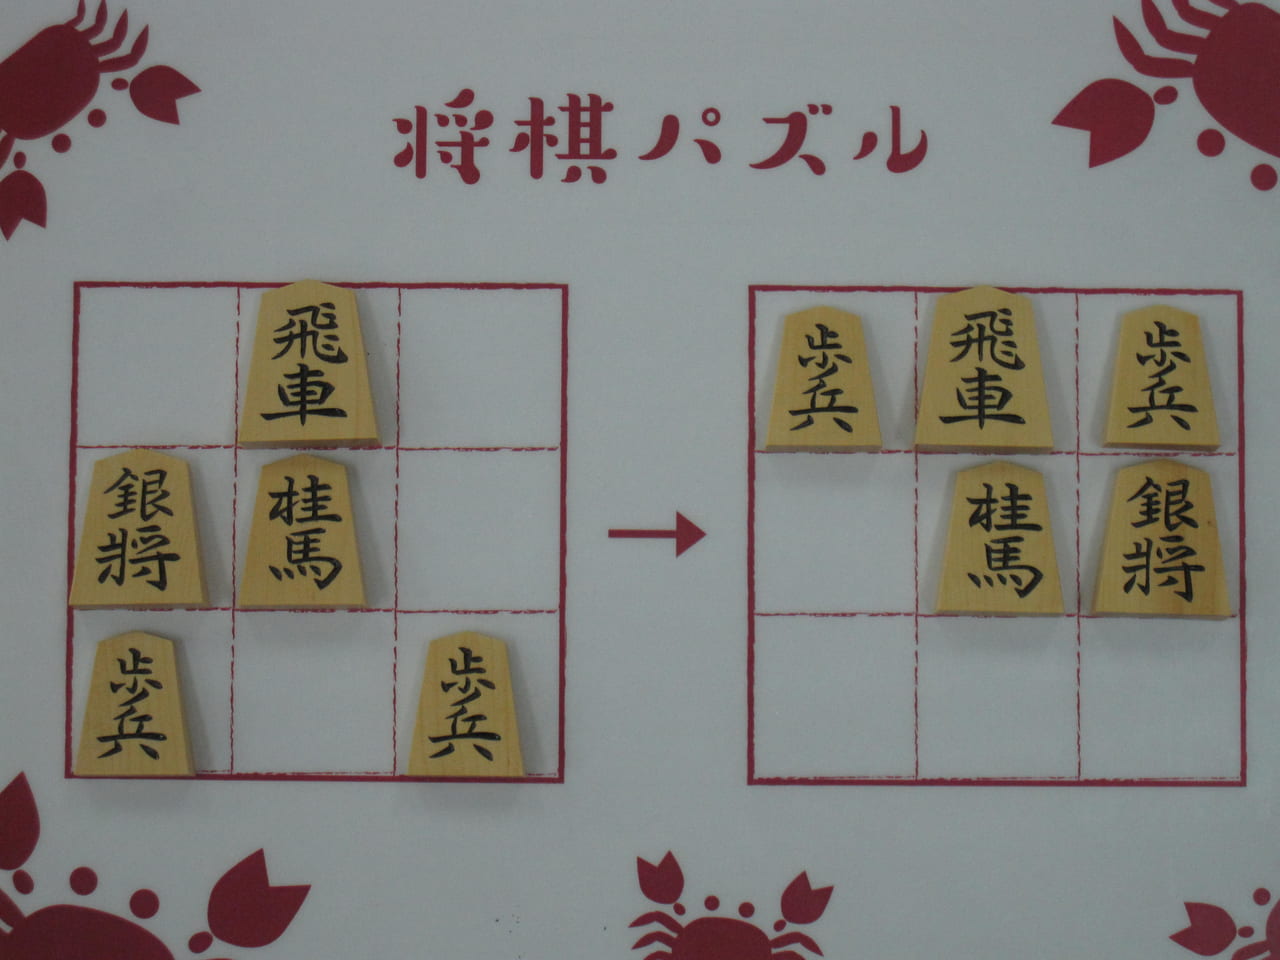 将棋パズル
飛車
銀将
桂馬
歩兵
歩兵
歩兵
飛車
歩兵
桂馬
銀将